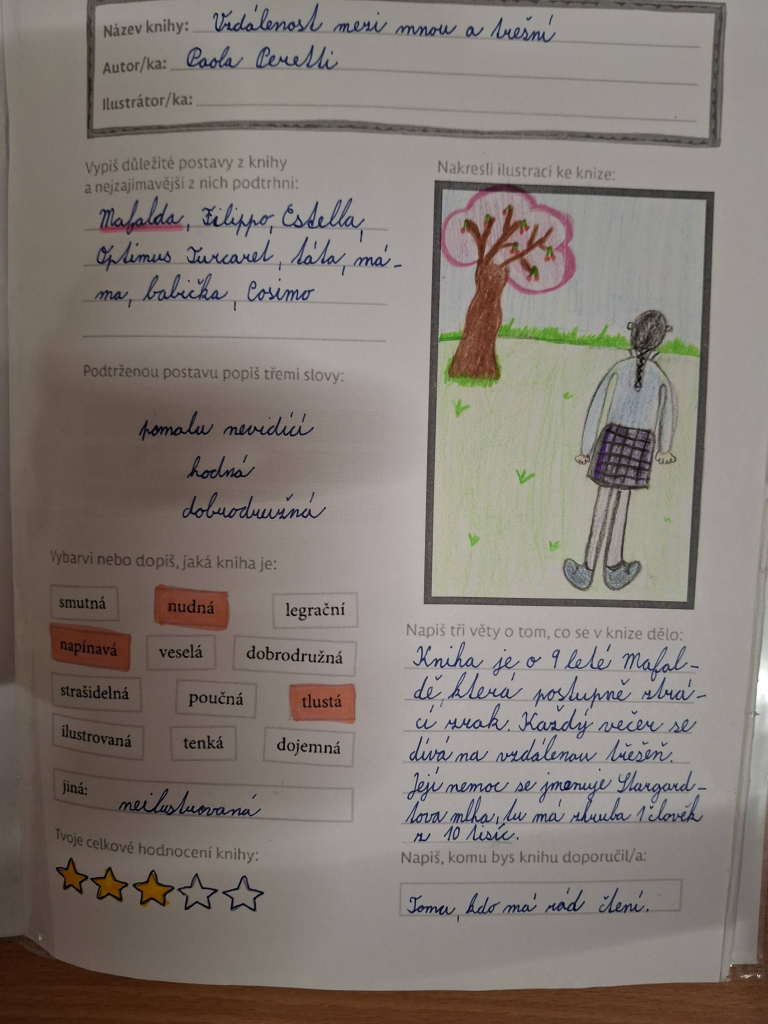 Název knihy: Vzdálenost mezi mnou a třešní
Autor/ka: Paola Peretti
Ilustrátor/ka:
Vypiš důležité postavy z knihy
a nejzajímavější z nich podtrhni:
Mafalda, Filippo, Estella,
Optimus Turcaret, táta, má-
ma, babička, Cosimo
Podtrženou postavu popiš třemi slovy:
pomalu nevidící
hodná
dobrodružná
Vybarvi nebo dopiš, jaká kniha je:
smutná nudná legrační
napínavá veselá dobrodružná
strašidelná poučná tlustá
ilustrovaná tenká dojemná
jiná: neilustrovaná
Tvoje celkové hodnocení knihy:
Nakresli ilustraci ke knize:
Napiš tři věty o tom, co se v knize dělo:
Kniha je o 9 leté Mafal-
dě, která postupně ztrá-
cí zrak. Každý večer se
dívá na vzdálenou třešeň.
Její nemoc se jmenuje Stargard-
tova mlha, tu má zhruba 1 člověk
z 10 tisíc.
Napiš, komu bys knihu doporučil/a:
Tomu, kdo má rád čtení.